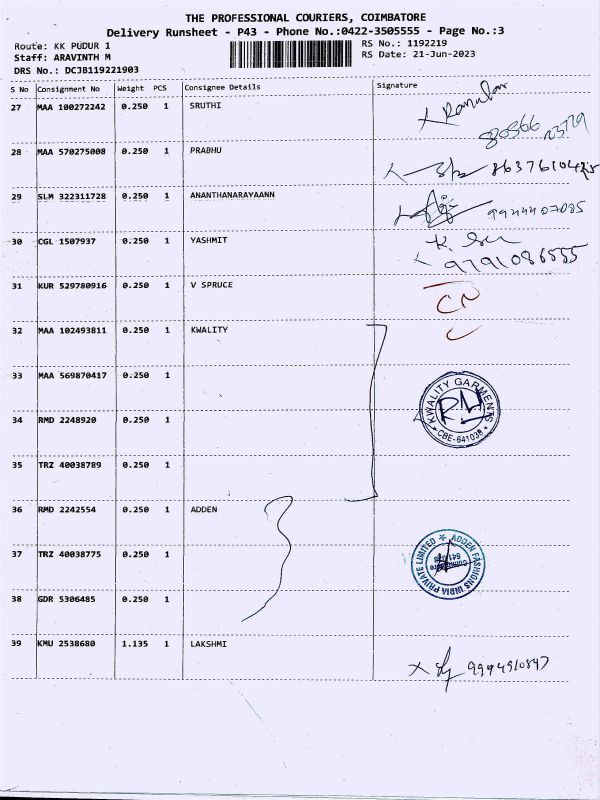 THE PROFESSIONAL COURIERS, COIMBATORE
Delivery Runsheet - P43 - Phone No.:0422-3505555 - Page No.:3
Route: KK PUDUR 1 RS No.: 1192219
Staff: ARAVINTH M RS Date: 21-Jun-2023
DRS No.: DCJB119221903
S No Consignment No Weight PCS Consignee Details Signature
27 MAA 100272242 0.250 1 SRUTHI
28 MAA 570275008 0.250 1 PRABHU
29 SLM 322311728 0.250 1 ANANTHANARAYAANN 9944407085
30 CGL 1507937 0.250 1 YASHMIT
9791086555
31 KUR 529780916 0.250 1 V SPRUCE
32 MAA 102493811 0.250 1 KWALITY
33 MAA 569870417 0.250 1
KWALITY GARMENTS
CBE-641038
34 RMD 2248920 0.250 1
35 TRZ 40038789 0.250 1
36 RMD 2242554 0.250 1 ADDEN
37 TRZ 40038775 0.250 1
ADDEN FASHIONS INDIA PRIVATE LIMITED
38 GDR 5306485 0.250 1
39 KMU 2538680 1.135 1 LAKSHMI
9994910847